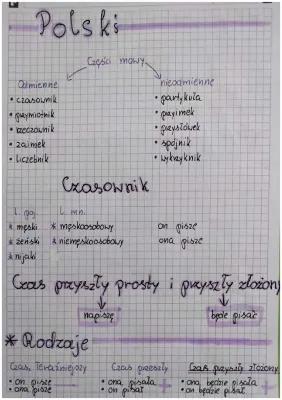 Polski
Części mowy
Odmienne nieodmienne
• czasownik • partykuła
• przymiotnik • przyimek
• rzeczownik • przysłówek
• zaimek • spójnik
• liczebnik • wykrzyknik
Czasownik
l. poj. l. mn.
* męski * męskoosobowy on pisze
* żeński * niemęskoosobowy ona pisze
* nijaki
Czas przyszły prosty i przyszły złożony
napiszę będę pisać
* Rodzaje
Czas teraźniejszy Czas przeszły Czas przyszły złożony
• on pisze • ona pisała • ona będzie pisała
• ona pisze • on pisał • on będzie pisał